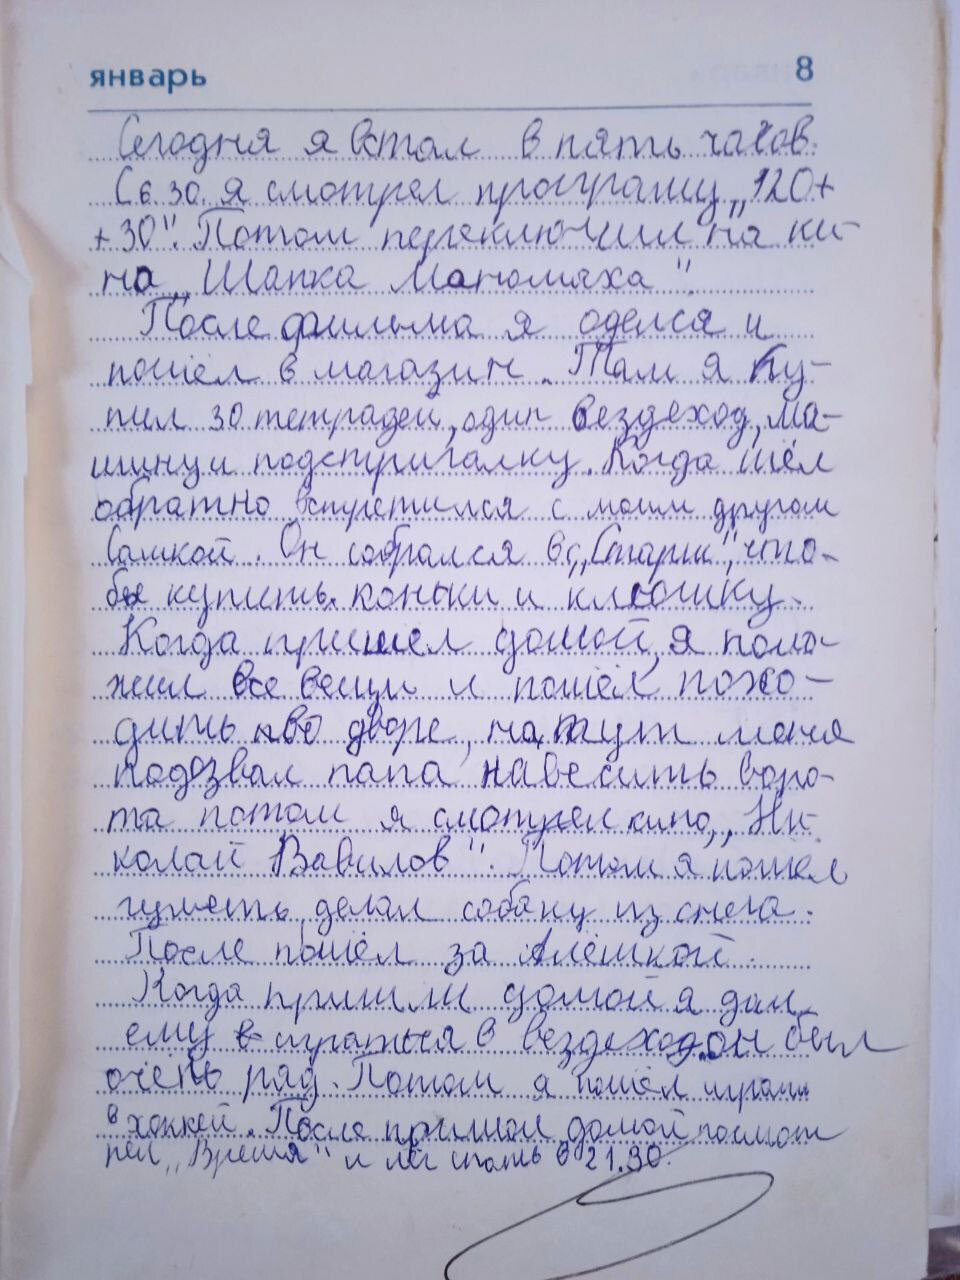 январь 8
Сегодня я встал в пять часов.
С 6.30. я смотрел програму „120+
+30". Потом переключили на ки-
но „Шапка Маномаха".
После фильма я оделся и
пошёл в магазин. Там я ку-
пил 30 тетрадей, один вездеход, ма-
шинц и подстригалку. Когда шёл
обратно встретился с моим другом
Сашкой. Он собрался в „Старт", что-
бы купить коньки и клюшку.
Когда пришел домой, я поло-
жил все вещи и пошёл похо-
дить во дворе, на тут меня
подозвал папа навесить воро-
та потом я смотрел кино „Ни-
колай Вавилов". Потом я пошел
гулять, делал собаку из снега.
После пошёл за Алёшкой.
Когда пришли домой я дал
ему играться в вездеход.он был
очень рад. Потом я пошёл играть
в хоккей. После пришол домой посмот
рел „Время" и лёг спать в 21.30.